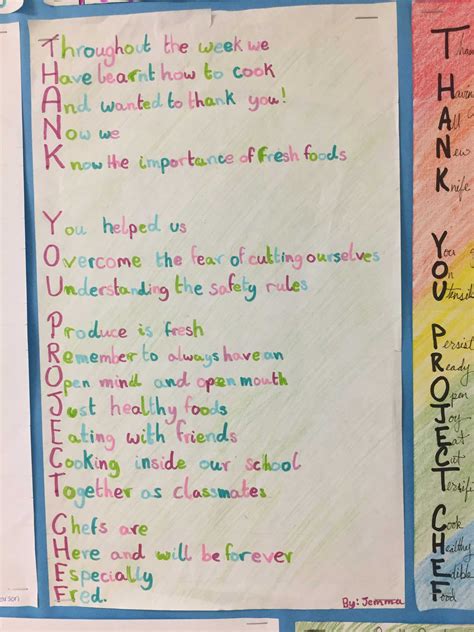 Throughout the week we
Have learnt how to cook
And wanted to thank you!
Now we
Know the importance of fresh foods
You helped us
Overcome the fear of cutting ourselves
Understanding the safety rules
Produce is fresh
Remember to always have an
Open mind and open mouth
Just healthy foods
Eating with friends
Cooking inside our school
Together as classmates
Chefs are
Here and will be forever
Especially
Fred.
By: Jemma
All
New
Knife
You
On
Utensils
Persist
Ready
Open
Joy
Eat
Cut
Terrifi
Cook
Healthy
Edible
Food